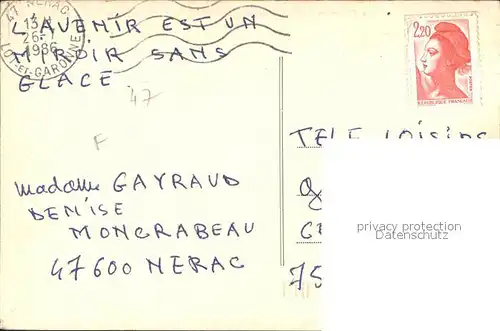 47 NERAC
13H
26-
1986
LOT-ET-GARONNE
L'AVENIR EST UN
MIROIR SANS
GLACE
47
F
2,20
REPUBLIQUE FRANÇAISE
Madame GAYRAUD
DENISE
MONCRABEAU
47600 NERAC
TELE LOISIRS
75
privacy protection
Datenschutz